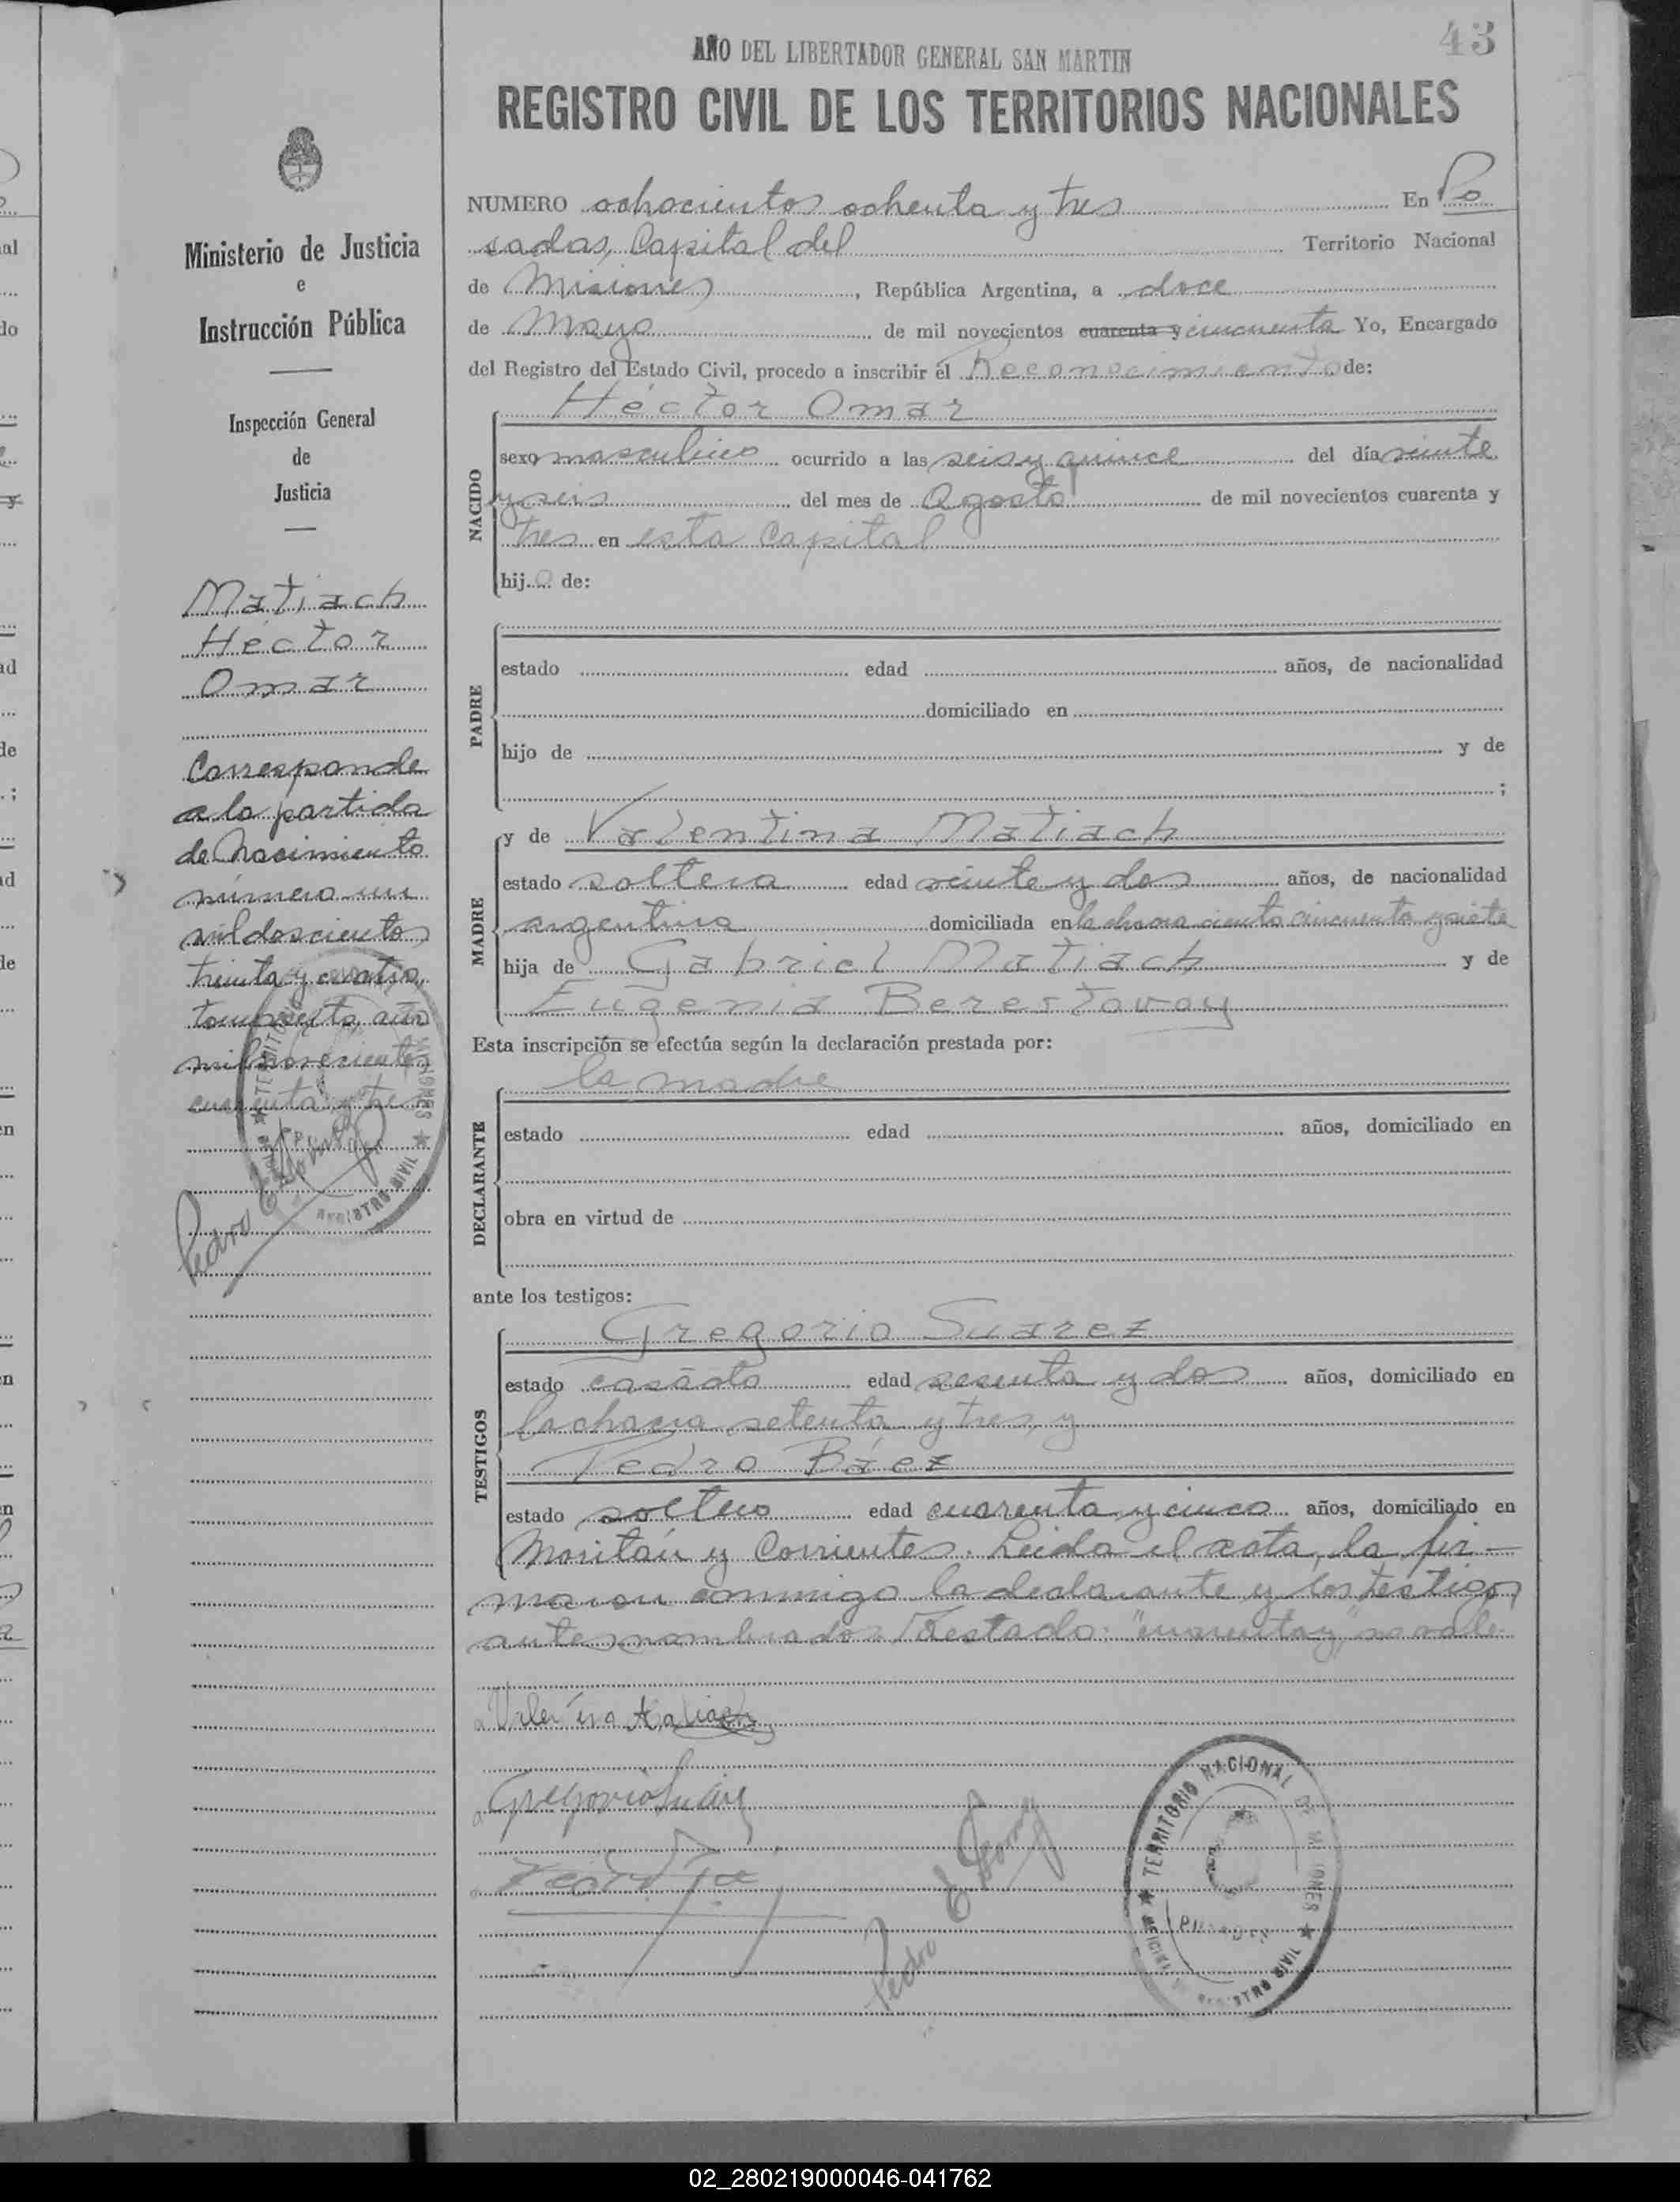 43
AÑO DEL LIBERTADOR GENERAL SAN MARTIN
REGISTRO CIVIL DE LOS TERRITORIOS NACIONALES
Ministerio de Justicia
e
Instrucción Pública
Inspección General
de
Justicia
Matiach
Héctor
Omar
Corresponde
a la partida
de Nacimiento
número un
mil doscientos
treinta y cuatro,
tomo sexto, año
mil novecientos
cuarenta y tres
NUMERO ochocientos ochenta y tres En Po
sadas, Capital del Territorio Nacional
de Misiones, República Argentina, a doce
de Mayo de mil novecientos cuarenta y cincuenta Yo, Encargado
del Registro del Estado Civil, procedo a inscribir el Reconocimiento de:
Héctor Omar
NACIDO
sexo masculino ocurrido a las seis y quince del día veinte
y seis del mes de Agosto de mil novecientos cuarenta y
tres en esta Capital
hijo de:
PADRE
estado edad años, de nacionalidad
domiciliado en
hijo de y de
;
MADRE
y de Valentina Matiach
estado soltera edad veinte y dos años, de nacionalidad
argentina domiciliada en la chacra ciento cincuenta y siete
hija de Gabriel Matiach y de
Eugenia Berestovoy
Esta inscripción se efectúa según la declaración prestada por:
la madre
DECLARANTE
estado edad años, domiciliado en
obra en virtud de
ante los testigos:
Gregorio Suarez
TESTIGOS
estado casado edad sesenta y dos años, domiciliado en
la chacra setenta y tres, y
Pedro Báez
estado soltero edad cuarenta y cinco años, domiciliado en
Moritán y Corrientes. Leida el acta, la fir-
maron conmigo la declarante y los testigos
antes nombrados. Testado: "cuarenta y" no vale.
Gregorio Suárez
Pedro E.
TERRITORIO NACIONAL DE MISIONES
REGISTRO CIVIL
02_280219000046-041762